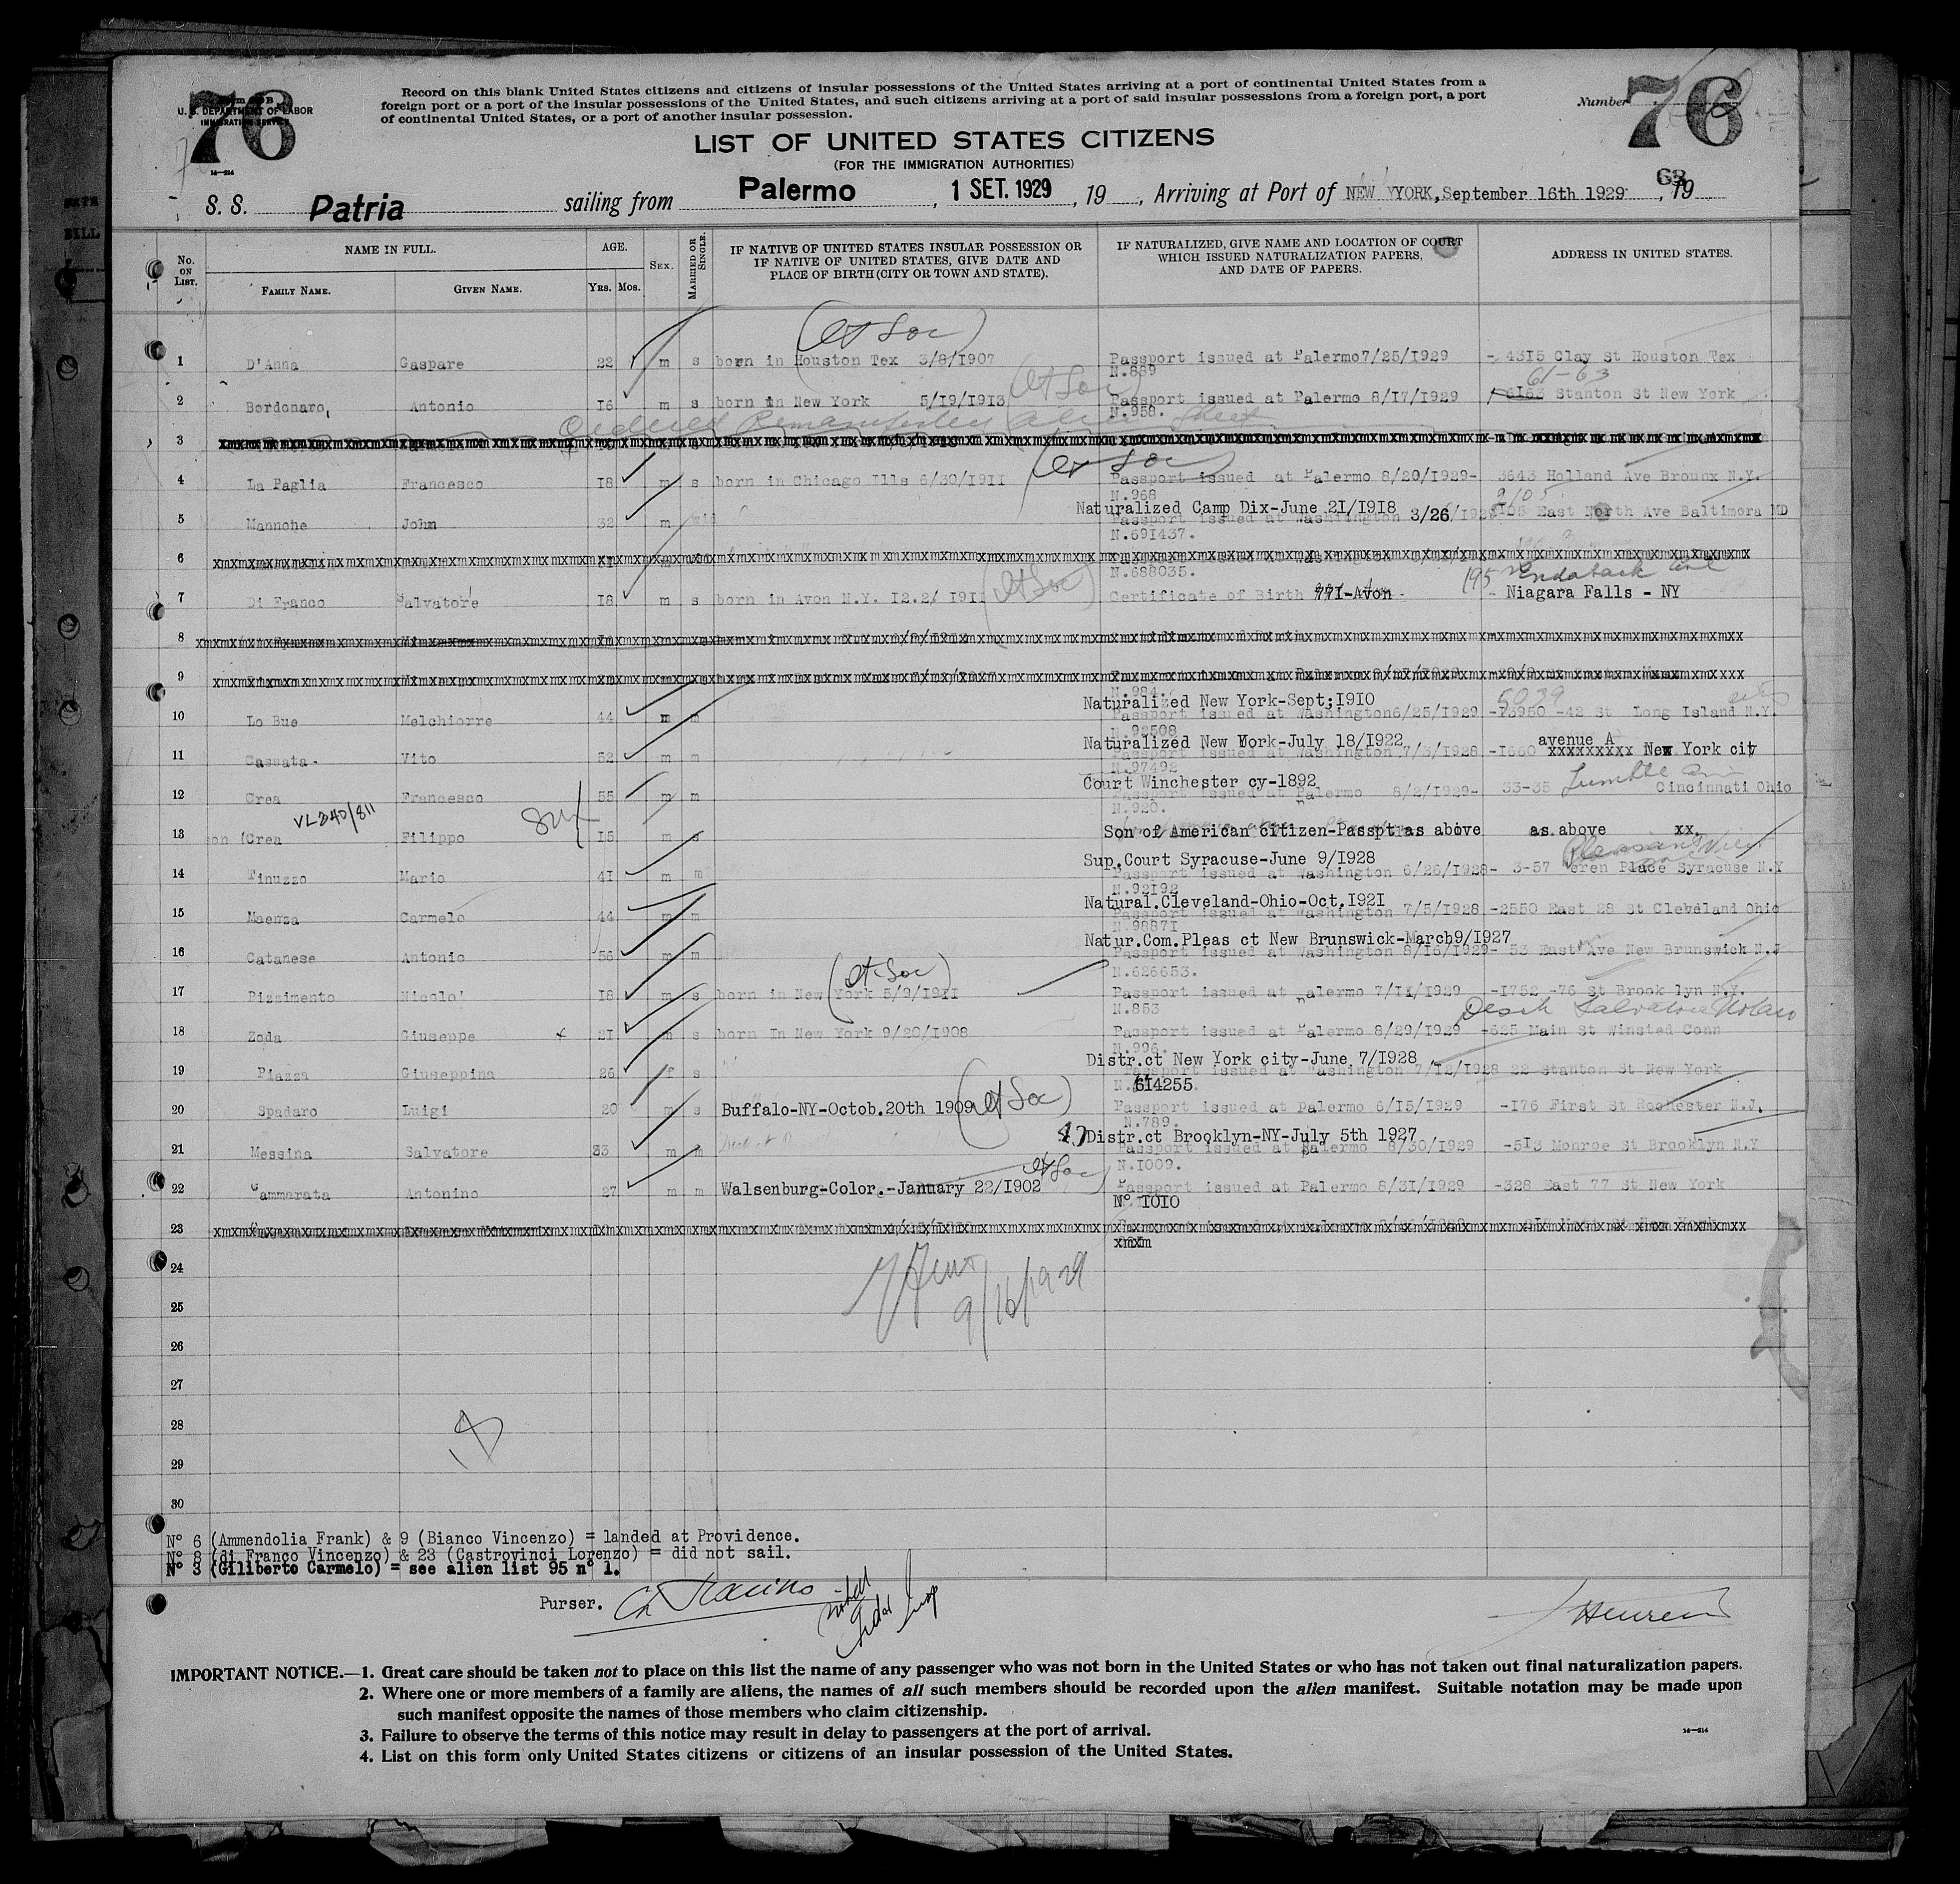 76
U. S. DEPARTMENT OF LABOR
IMMIGRATION SERVICE
14—214
Record on this blank United States citizens and citizens of insular possessions of the United States arriving at a port of continental United States from a
foreign port or a port of the insular possessions of the United States, and such citizens arriving at a port of said insular possessions from a foreign port, a port
of continental United States, or a port of another insular possession.
Number 76
LIST OF UNITED STATES CITIZENS
(FOR THE IMMIGRATION AUTHORITIES)
S. S. Patria sailing from Palermo, 1 SET. 1929, 19 , Arriving at Port of NEW YORK, September 16th 1929, 19
No. ON LIST. NAME IN FULL. AGE. SEX. MARRIED OR SINGLE. IF NATIVE OF UNITED STATES INSULAR POSSESSION OR IF NATIVE OF UNITED STATES, GIVE DATE AND PLACE OF BIRTH (CITY OR TOWN AND STATE). IF NATURALIZED, GIVE NAME AND LOCATION OF COURT WHICH ISSUED NATURALIZATION PAPERS, AND DATE OF PAPERS. ADDRESS IN UNITED STATES.
FAMILY NAME. GIVEN NAME. YRS. MOS.
1 D'Anna Gaspare 22 m s born in Houston Tex 3/8/1907 Passport issued at Palermo 7/25/1929 - 4315 Clay St Houston Tex
N.889
61-63
2 Bordonaro, Antonio 16 m s born in New York 5/19/1913 Passport issued at Palermo 8/17/1929 Stanton St New York
N.958.
3
4 La Paglia Francesco 18 m s born in Chicago Ills 6/30/1911 Passport issued at Palermo 8/20/1929- 3643 Holland Ave Brounx N.Y.
N.968
Naturalized Camp Dix-June 21/1918
5 Mannone John 32 m wid Passport issued at Washington 3/26/192 East North Ave Baltimora MD
N.591437.
6
N.688035.
7 Di Franco Salvatore 18 m s born in Avon N.Y. 12.2/ 1911 Certificate of Birth 771-Avon - - Niagara Falls - NY
8
9
N.984.
Naturalized New York-Sept;1910 5039
10 Lo Bue Melchiorre 44 m m Passport issued at Washington 6/25/1929 -42 St Long Island N.Y.
N.92508
Naturalized New York-July 18/1922 avenue A
11 Cassata- Vito 52 m m Passport issued at Washington 7/3/1928 -1660 xxxxxxxxx New York city
N.97492
Court Winchester cy-1892
12 Crea Francesco 55 m m Passport issued at Palermo 8/2/1929- 33-35 Cincinnati Ohio
N.920.
13 Crea Filippo 15 m s Son of American citizen-Passpt as above as above xx.
Sup.Court Syracuse-June 9/1928
14 Tinuzzo Mario 41 m m Passport issued at Washington 6/26/1928- 3-57 Place Syracuse N.Y
N.92192
Natural.Cleveland-Ohio-Oct.1921
15 Maenza Carmelo 44 m m Passport issued at Washington 7/5/1928 -2550 East 28 St Cleveland Ohio
N.98871
Natur.Com.Pleas ct New Brunswick-March9/1927
16 Catanese Antonio 56 m m Passport issued at Washington 8/16/1929- 53 East Ave New Brunswick N.J
N.626653.
17 Pizzimento Nicolo' 18 m s born in New York 5/9/1911 Passport issued at Palermo 7/11/1929 -1752 -76 St Brook lyn N.Y.
N.853
18 Zoda Giuseppe 21 m s born In New York 9/20/1908 Passport issued at Palermo 8/29/1929 -625 Main St Winsted Conn
N.996.
Distr.ct New York city-June 7/1928
19 Piazza Giuseppina 26 f s Passport issued at Washington 7/12/1928 22 Stanton St New York
614255
20 Spadaro Luigi 20 m s Buffalo-NY-Octob.20th 1909 Passport issued at Palermo 6/15/1929 -176 First St Rochester N.J.
N.789.
Distr.ct Brooklyn-NY-July 5th 1927
21 Messina Salvatore 33 m m Passport issued at Palermo 8/30/1929 -513 Monroe St Brooklyn N.Y
N.1009.
22 Cammarata Antonino 27 m m Walsenburg-Color.-January 22/1902 Passport issued at Palermo 8/31/1929 -328 East 77 St New York
N° 1010
23
24
9/16/1929
25
26
27
28
29
30
N° 6 (Ammendolia Frank) & 9 (Bianco Vincenzo) = landed at Providence.
N° 8 (di Franco Vincenzo) & 23 (Castrovinci Lorenzo) = did not sail.
N° 3 (Giliberto Carmelo) = see alien list 95 n° 1.
Purser.
IMPORTANT NOTICE.—1. Great care should be taken not to place on this list the name of any passenger who was not born in the United States or who has not taken out final naturalization papers.
2. Where one or more members of a family are aliens, the names of all such members should be recorded upon the alien manifest. Suitable notation may be made upon
such manifest opposite the names of those members who claim citizenship.
3. Failure to observe the terms of this notice may result in delay to passengers at the port of arrival.
14—214
4. List on this form only United States citizens or citizens of an insular possession of the United States.